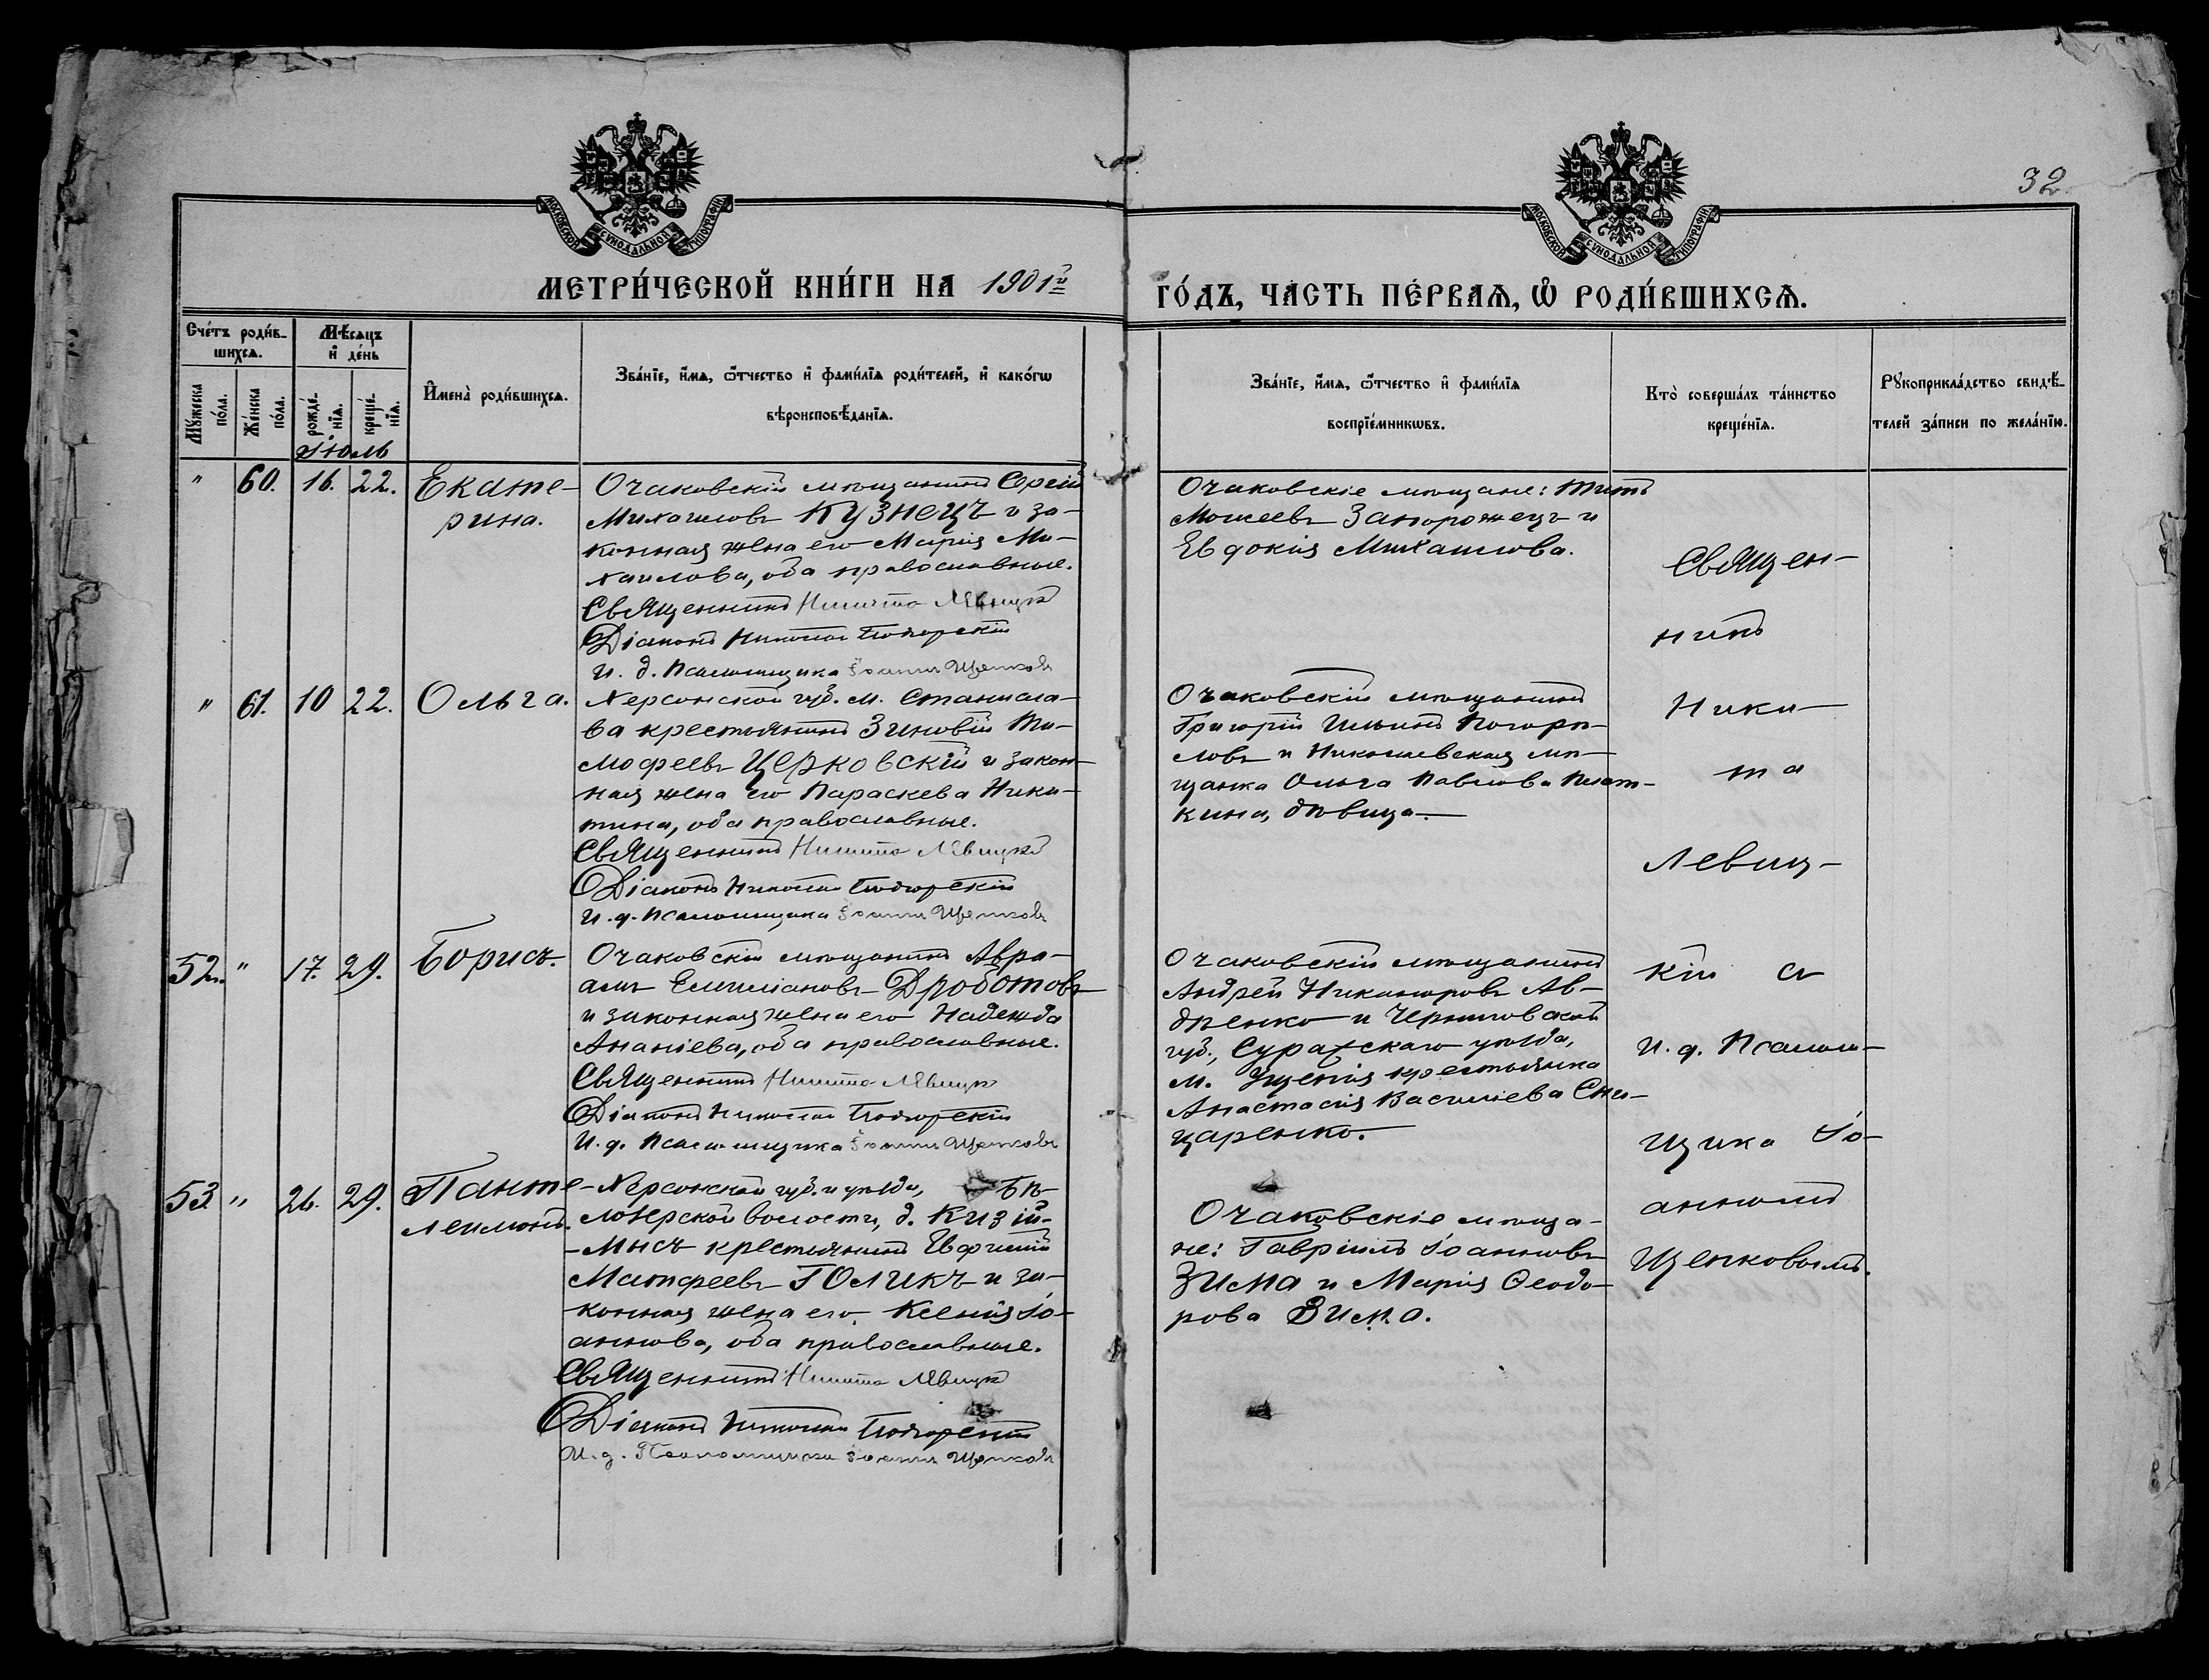 32
МОСКОВСКОЙ СѴНОДАЛЬНОЙ ТИПОГРАФІИ
МОСКОВСКОЙ СѴНОДАЛЬНОЙ ТИПОГРАФІИ
МЕТРИ́ЧЕСКОЙ КНИ́ГИ НА 1901й
ГО́ДЪ, ЧА́СТЬ ПЕ́РВАѦ, Ѡ҆ РОДИ́ВШИХСѦ.
Сче́тъ роди́в-
шихсѧ.
Мꙋ́жеска
по́ла.
Же́нска
по́ла.
Мѣ́сѧцъ
и҆ де́нь
рожде́-
нїѧ.
креще́-
нїѧ.
Іюль
И҆мена̀ роди́вшихсѧ.
Зва́нїе, и҆́мѧ, ѻ҆́тчество и҆ фами́лїѧ роди́телей, и҆ како́гѡ
вѣроисповѣ́данїѧ.
Зва́нїе, и҆́мѧ, ѻ҆́тчество и҆ фами́лїѧ
воспрїе́мникѡвъ.
Кто̀ соверша́лъ та́инство
креще́нїѧ.
Рꙋкоприкла́дство свидѣ́-
телей за́писи по жела́нїю.
" 60. 16. 22.
Екате-
рина.
Очаковскій мѣщанинъ Сергій
Михаиловъ Кузнецъ и за-
конная жена его Марія Ми-
хаилова, оба православные.
Священникъ Никита Левицкій
Діаконъ Николай Подгорскій
И. д. Псаломщика Іоаннъ Щепковъ
Очаковскіе мѣщане: Титъ
Моисеевъ Запорожецъ и
Евдокія Михаилова.
" 61. 10 22.
Ольга.
Херсонской губ. м. Станисла-
ва крестьянинъ Зиновій Ти-
мофеевъ Церковскій и закон-
ная жена его Параскева Ники-
тина, оба православные.
Священникъ Никита Левицкій
Діаконъ Николай Подгорскій
И. д. Псаломщика Іоаннъ Щепковъ
Очаковскій мѣщанинъ
Григорій Ильинъ Погорѣ-
ловъ и Николаевская мѣ-
щанка Ольга Павлова Плат-
кина, дѣвица.
52. " 17. 29.
Борисъ.
Очаковскій мѣщанинъ Авра-
амъ Емиліановъ Дроботовъ
и законная жена его Надежда
Ананіева, оба православные.
Священникъ Никита Левицкій
Діаконъ Николай Подгорскій
И. д. Псаломщика Іоаннъ Щепковъ
Очаковскій мѣщанинъ
Андрей Никаноровъ Ав-
дѣенко и Черниговской
губ., Суражскаго уѣзда,
м. крестьянка
Анастасія Василіева Сни-
царенко.
53. " 26. 29.
Панте-
леимонъ.
Херсонской губ. и уѣзда, Бѣ-
лозерской волости, д. Кизій-
-Мысъ крестьянинъ Евфимій
Матфеевъ Голикъ и за-
конная жена его Ксенія Іо-
аннова, оба православные.
Священникъ Никита Левицкій
Діаконъ Николай Подгорскій
И. д. Псаломщика Іоаннъ Щепковъ
Очаковскіе мѣща-
не: Гавріилъ Іоанновъ
Зима и Марія Ѳеодо-
рова Зима.
Священ-
никъ
Ники-
та
Левиц-
кій съ
и. д. Псалом-
щика Іо-
анномъ
Щепковымъ.